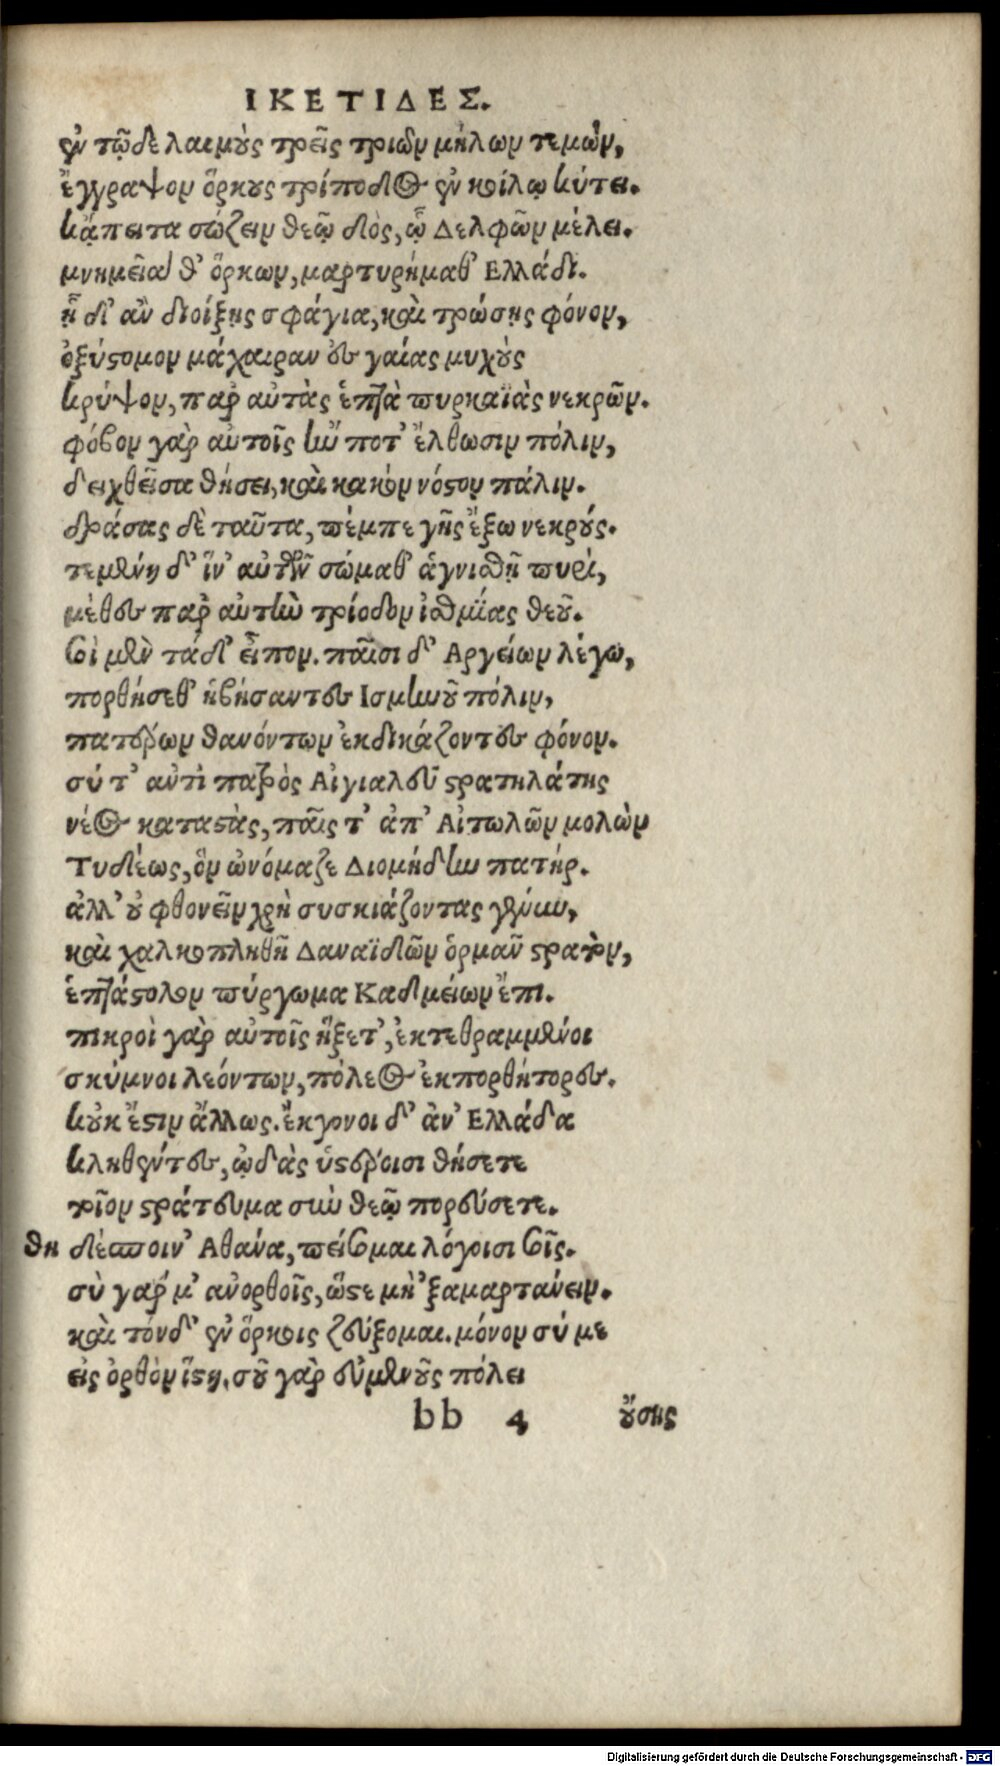 ΙΚΕΤΙΔΕΣ.
ἐν τῷδε λαιμοὺς τρεῖς τριῶν μήλων τεμών,
ἔγγραψον ὅρκους τρίποδος ἐν κοίλῳ κύτει.
κᾄπειτα σώζειν θεῷ δὸς, ᾧ Δελφῶν μέλει.
μνημεῖά θ' ὅρκων, μαρτυρήμαθ' Ελλάδι.
ᾗ δ' ἂν διοίξῃς σφάγια, καὶ τρώσῃς φόνον,
ὀξύστομον μάχαιραν ἐς γαίας μυχοὺς
κρύψον, παρ' αὐτὰς ἑπτὰ πυρκαϊὰς νεκρῶν.
φόβον γὰρ αὐτοῖς ἤν ποτ' ἔλθωσιν πόλιν,
δειχθεῖσα θήσει, καὶ κακὸν νόστον πάλιν.
δράσας δὲ ταῦτα, πέμπε γῆς ἔξω νεκρούς.
τεμένη δ' ἵν' αὐτῶν σώμαθ' ἁγνισθῇ πυρὶ,
μέθες παρ' αὐτὴν τρίοδον ἰσθμίας θεοῦ.
σοὶ μὲν τάδ' εἶπον. παισὶ δ' Αργείων λέγω,
πορθήσεθ' ἡβήσαντες Ισμηνοῦ πόλιν,
πατέρων θανόντων ἐκδικάζοντες φόνον.
σύ τ' αὐτὶ πατρὸς Αἰγιαλεῦ στρατηλάτης
νέος καταστὰς, παῖς τ' ἀπ' Αἰτωλῶν μολὼν
Τυδέως, ὃν ὠνόμαζε Διομήδην πατήρ.
ἀλλ' οὐ φθονεῖν χρὴ συσκιάζοντας γένυν,
καὶ χαλκοπληθῆ Δαναϊδῶν ὁρμᾶν στρατὸν,
ἑπτάστολον πύργωμα Καδμείων ἔπι.
πικροὶ γὰρ αὐτοῖς ἥξετ', ἐκτεθραμμένοι
σκύμνοι λεόντων, πόλεος ἐκπορθήτορες.
κοὐκ ἔστιν ἄλλως. ἔκγονοι δ' ἀν' Ελλάδα
κληθέντες, ᾠδὰς ὑστέροισι θήσετε
τοῖον στράτευμα σὺν θεῷ πορεύσετε.
θη δέσποιν' Αθάνα, πείσομαι λόγοισι σοῖς.
σὺ γάρ μ' ἀνορθοῖς, ὥστε μὴ 'ξαμαρτάνειν.
καὶ τόνδ' ἐν ὅρκοις ζεύξομαι. μόνον σύ με
εἰς ὀρθὸν ἵστη. σοῦ γὰρ εὐμενοῦς πόλει
bb 4 οὔσης
Digitalisierung gefördert durch die Deutsche Forschungsgemeinschaft - DFG